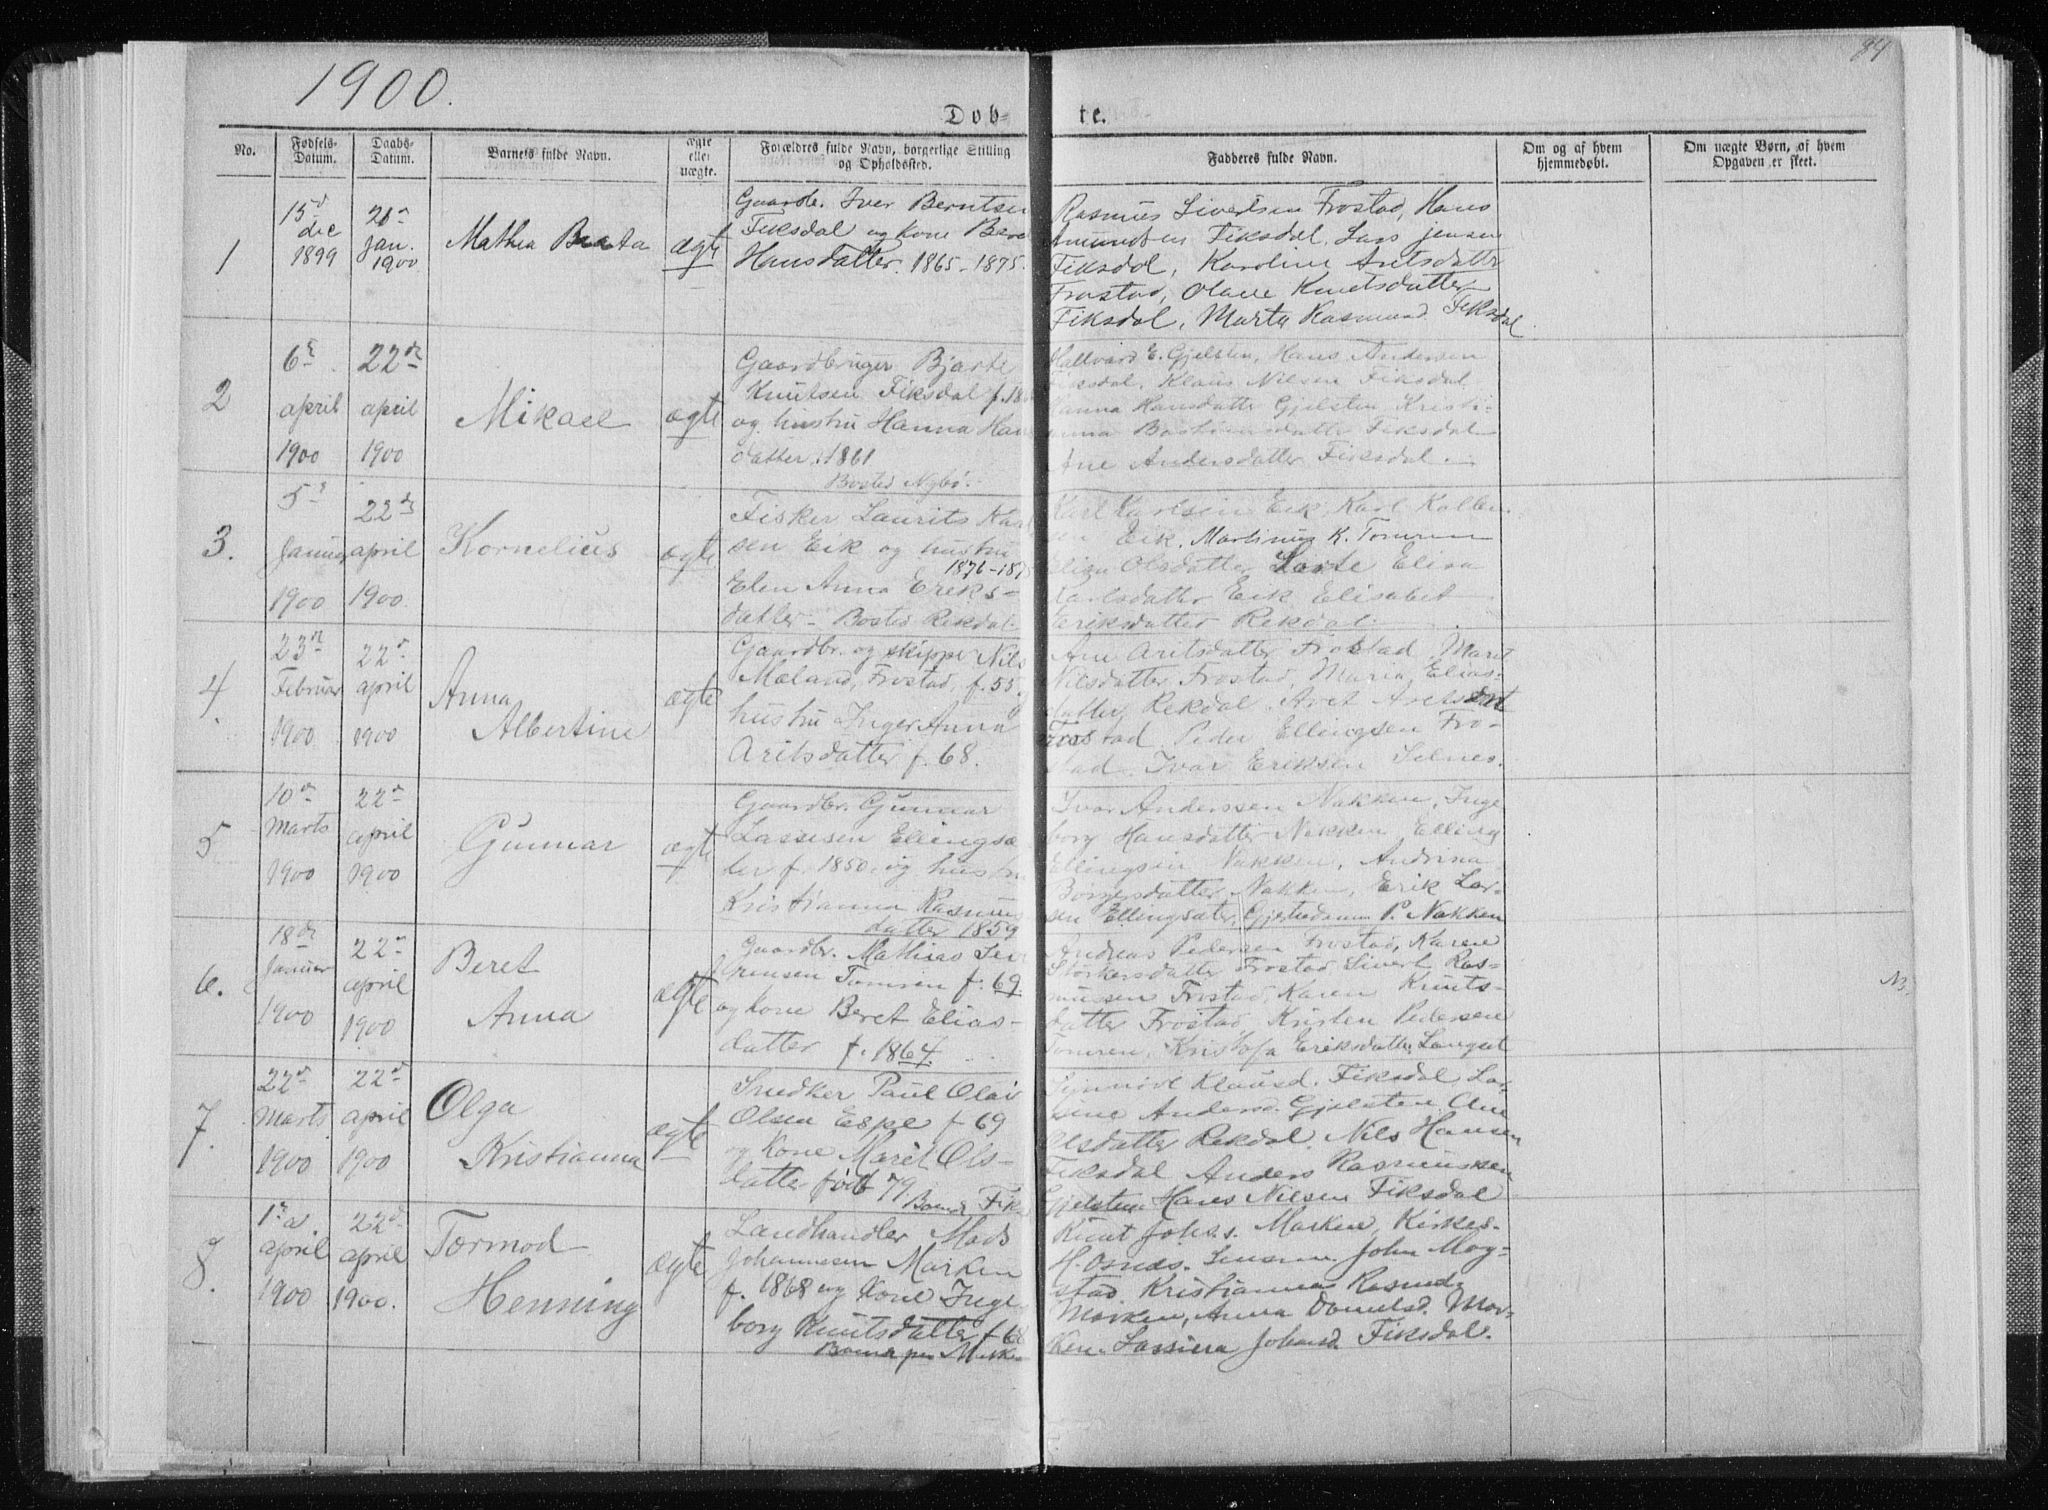 84
1900.
Døb-
te.
No.
Fødsels-
Datum.
Daabs-
Datum.
Barnets fulde Navn.
ægte
eller
uægte.
Forældres fulde Navn, borgerlige Stilling
og Opholdssted.
Fadderes fulde Navn.
Om og af hvem
hjemmedøbt.
Om uægte Børn, af hvem
Opgaven er skeet.
1
15de
dec
1899
jan.
1900
Mathea
ægte
Gaardb. Iver Berntsen
Fiksdal og kone
Hansdatter. 1865-1875
Rasmus Sivertsen Frostad, Hans
Amundsen Fiksdal, Lars Jensen
Fiksdal, Karoline Aritsdatter
Frostad, Olave Knutsdatter
Fiksdal, Marta Rasmusd. Fiksdal
2
6
april
1900
22de
april
1900
Mikael
ægte
Gaardbruger Bjarte
Knutsen Fiksdal f. 18
og hustru Hanna Han
datter 1861
Bosted Nybø.
Hallvard E. Gjelsten, Hans Andersen
Fiksdal, Klaus Nilsen Fiksdal
Hanna Hansdatter Gjelsten, Kristi-
Fiksdal
Ane Andersdatter Fiksdal
3.
5
Januar
1900
22de
april
1900
Kornelius
ægte
Fisker Laurits Karl
sen Eik og hustru
1876-187
Elen Anna Eriks-
datter - Bosted Rekdal.
Karl Karlsen Eik, Karl Kolben
sen Eik, Martinus K. Tomren
Olsdatter Elisa
Karlsdatter Eik Elisabet
Eriksdatter Rekdal.
4
23de
Februar
1900
22de
april
1900
Anna
Albertine
ægte
Gaardbr. og skipper Nils
Mæland, Frostad, f. 55
hustru Inger Anna
Aritsdatter f. 68.
Ane Aritsdatter Frostad, Maret
Nilsdatter Frostad, Maria Elias-
datter Rekdal,
Peder Ellingsen Fro-
stad. Ivar Eriksen Selnes.
5
10de
Marts
1900
22de
april
1900
Gunnar
ægte
Gaardbr. Gunnar
Lassesen Ellingsæ
ter f. 1850. og hustru
Kristianna Rasmus
datter 1859
Ivar Anderssen Nakken, Inge-
borg Hansdatter Nakken, Elling
Ellingsen Nakken, Andrina
Nakken, Erik Lar-
sen Ellingsæter, P. Nakken
6.
18de
Januar
1900
22de
april
1900
Beret
Anna
ægte
Gaardbr. Mathias
Tomren f. 69.
og kone Beret Elias-
datter f. 1864.
Andreas Pedersen Frostad, Karen
Storkersdatter Frostad, Sivert Ras-
mussen Frostad, Karen Knuts-
datter Frostad, Kristen Pedersen
Tomren, Kristofa Eriksdatter Langset
7.
22de
Marts
1900
22de
april
1900
Olga
Kristianna
ægte
Snedker Paul Olai
Olsen Espe f 69
og Kone Marit Ols-
datter født 79.
Synnøve Klausd. Fiksdal
Andersd. Gjelsten. Ane
Olsdatter Rekdal. Nils Hansen
Fiksdal Anders Rasmussen
Gjelsten Hans Nilsen Fiksdal
8.
april
1900
22de
april
1900.
Tormod
Henning
ægte
Landhandler Mads
Johannessen Marken
f. 1868 og Kone Inge-
borg Knutsdatter f 68
Knut Johs. Marken,
John Moy-
stad. Kristianna Rasmd.
Marken, Anna Danielsd. Mar-
ken. Johansd. Fiksdal.